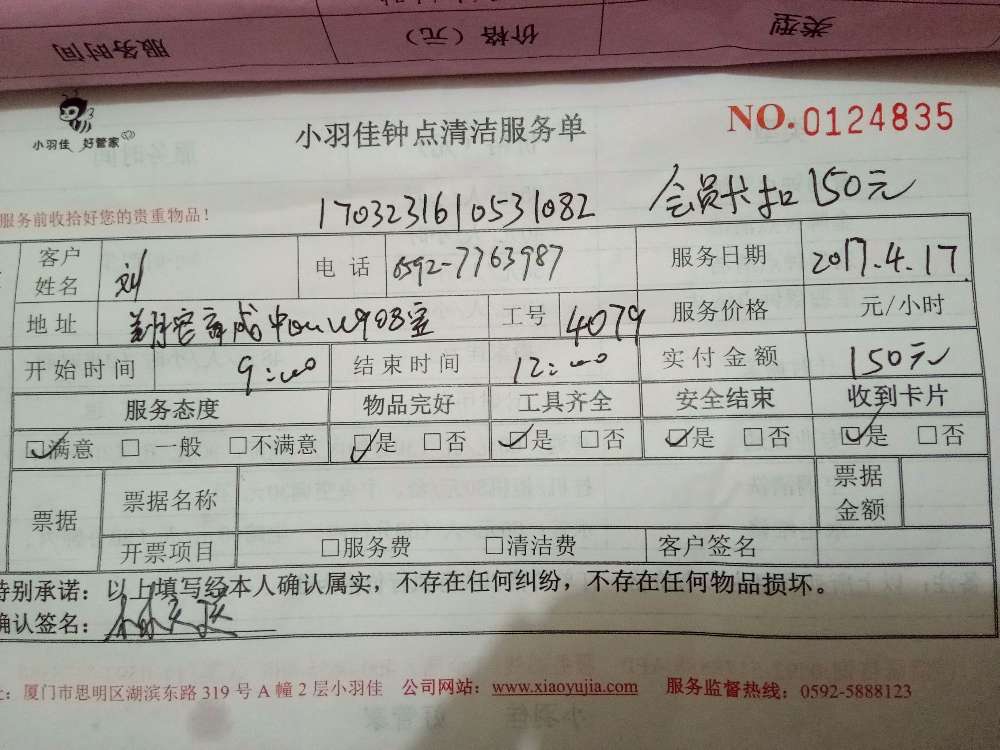 服务时间 价格（元） 类型
小羽佳 好管家
小羽佳钟点清洁服务单
NO.0124835
服务前收拾好您的贵重物品！
1703231610531082 会员卡扣150元
客户姓名 刘 电话 0592-7763987 服务日期 2017.4.17.
地址 工号 4079 服务价格 元/小时
开始时间 9:00 结束时间 12:00 实付金额 150元
服务态度 物品完好 工具齐全 安全结束 收到卡片
☑满意 □一般 □不满意 ☑是 □否 ☑是 □否 ☑是 □否 ☑是 □否
票据 票据名称 票据金额
开票项目 □服务费 □清洁费 客户签名
特别承诺：以上填写经本人确认属实，不存在任何纠纷，不存在任何物品损坏。
确认签名：
厦门市思明区湖滨东路319号A幢2层小羽佳 公司网站：www.xiaoyujia.com 服务监督热线：0592-5888123